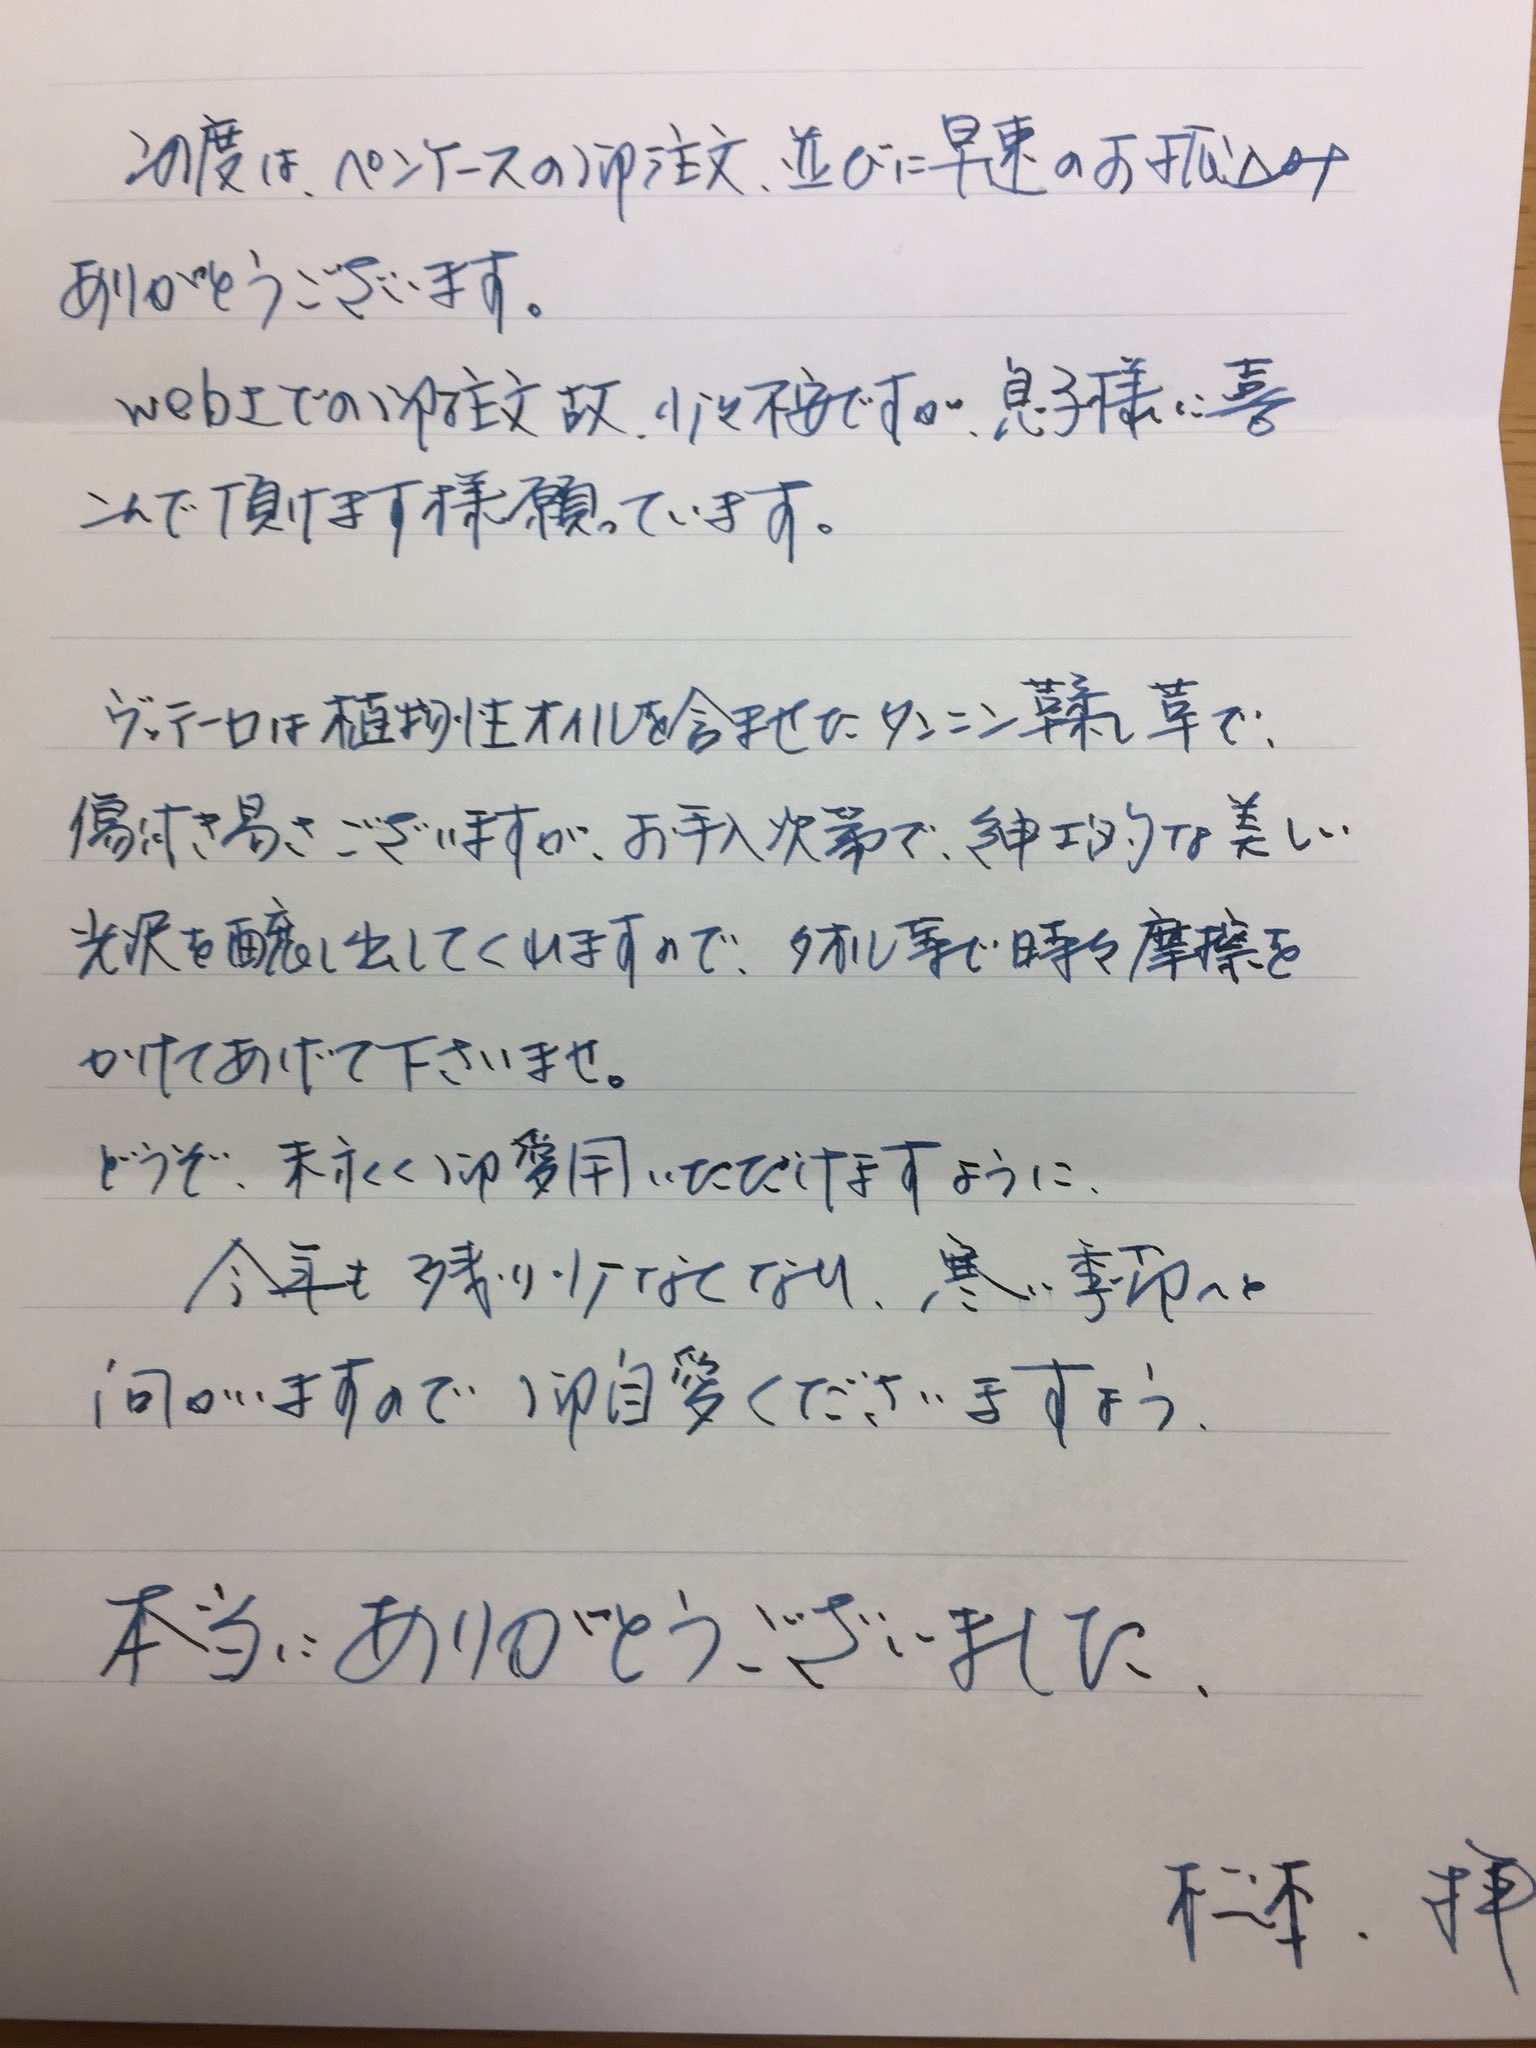 この度は、ペンケースの御注文、並びに早速のお振込み
ありがとうございます。
web上での御注文故、少々不安ですが、息子様に喜
んで頂けます様願っています。
ヴッテーロは植物性オイルを含ませたタンニン鞣し革で、
傷付き易さございますが、お手入次第で、紳士的な美しい
光沢を醸し出してくれますので、タオル等で時々摩擦を
かけてあげて下さいませ。
どうぞ、末永く御愛用いただけますように、
今年も残り少なくなり、寒い季節へと
向かいますので御自愛くださいますよう、
本当にありがとうございました、
松本、拝